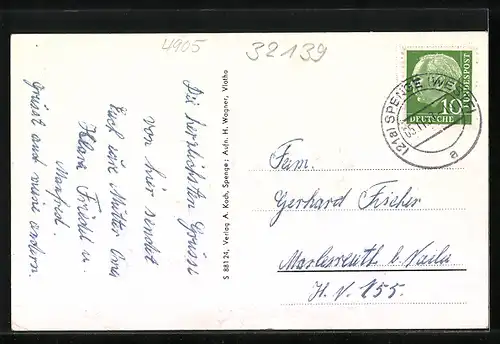 4905
32139
Die herzlichsten Grüsse
von hier sendet
Euch eure Mutter Oma
Friedel u
Manfred.
Grüsst auch meine andern.
S 88124, Verlag A. Koch, Spenge; Aufn. H. Wagner, Vlotho
DEUTSCHE BUNDESPOST
10
(21a) SPENGE (WESTF)
a
Fam.
Gerhard Fischer
Marlesreuth b/ Naila
H. N. 155.